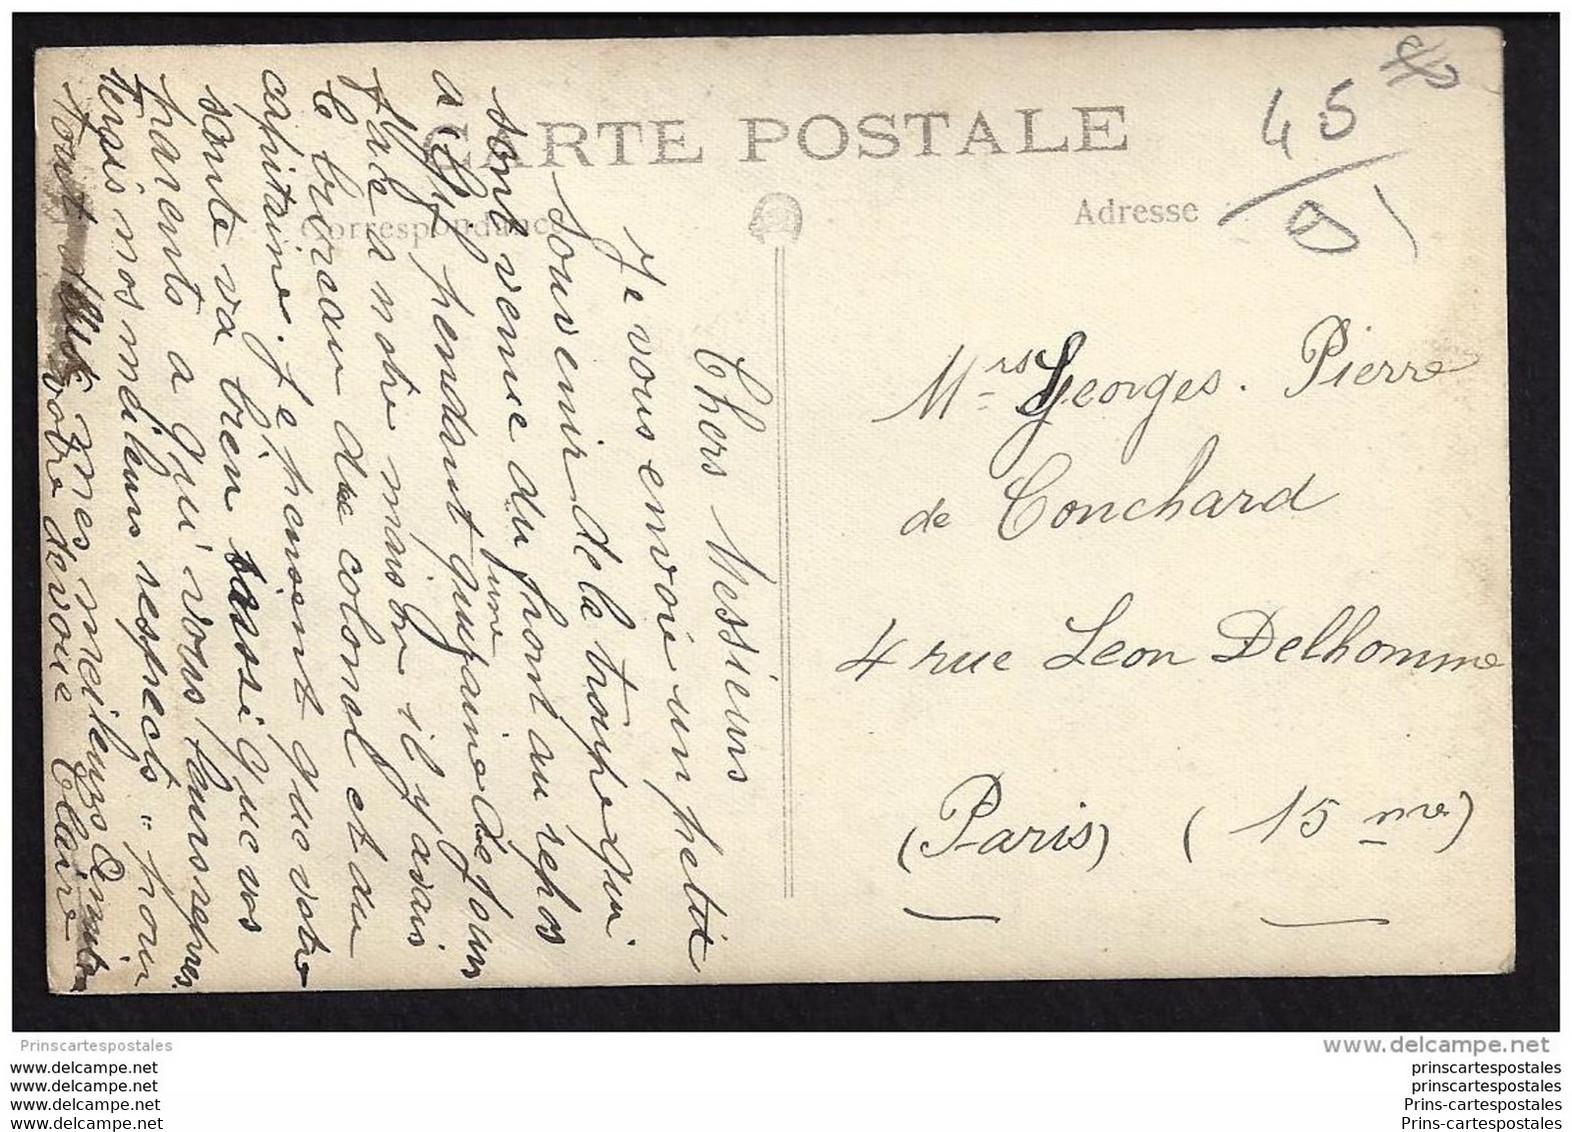 CARTE POSTALE
Correspondance
Adresse
45
Mrs Georges. Pierre
de Conchard
4 rue Leon Delhomme
(Paris) (15 me)
Chers Messieurs
Je vous envoie un petit
souvenir de la troupe qui
sont venue du front au repos
a pendant une quinzaine de jours
face a notre maison il y avais
le bureau de colonel et du
capitaine. Je pensent que votre
sante va bien aussi que vos
parents a qui vous leurs
mes meilleurs respects = pour
vous mes meilleurs
votre devoue Claire
Prinscartespostales
www.delcampe.net
www.delcampe.net
www.delcampe.net
www.delcampe.net
www.delcampe.net
prinscartespostales
prinscartespostales
Prins-cartespostales
Prins-cartespostales